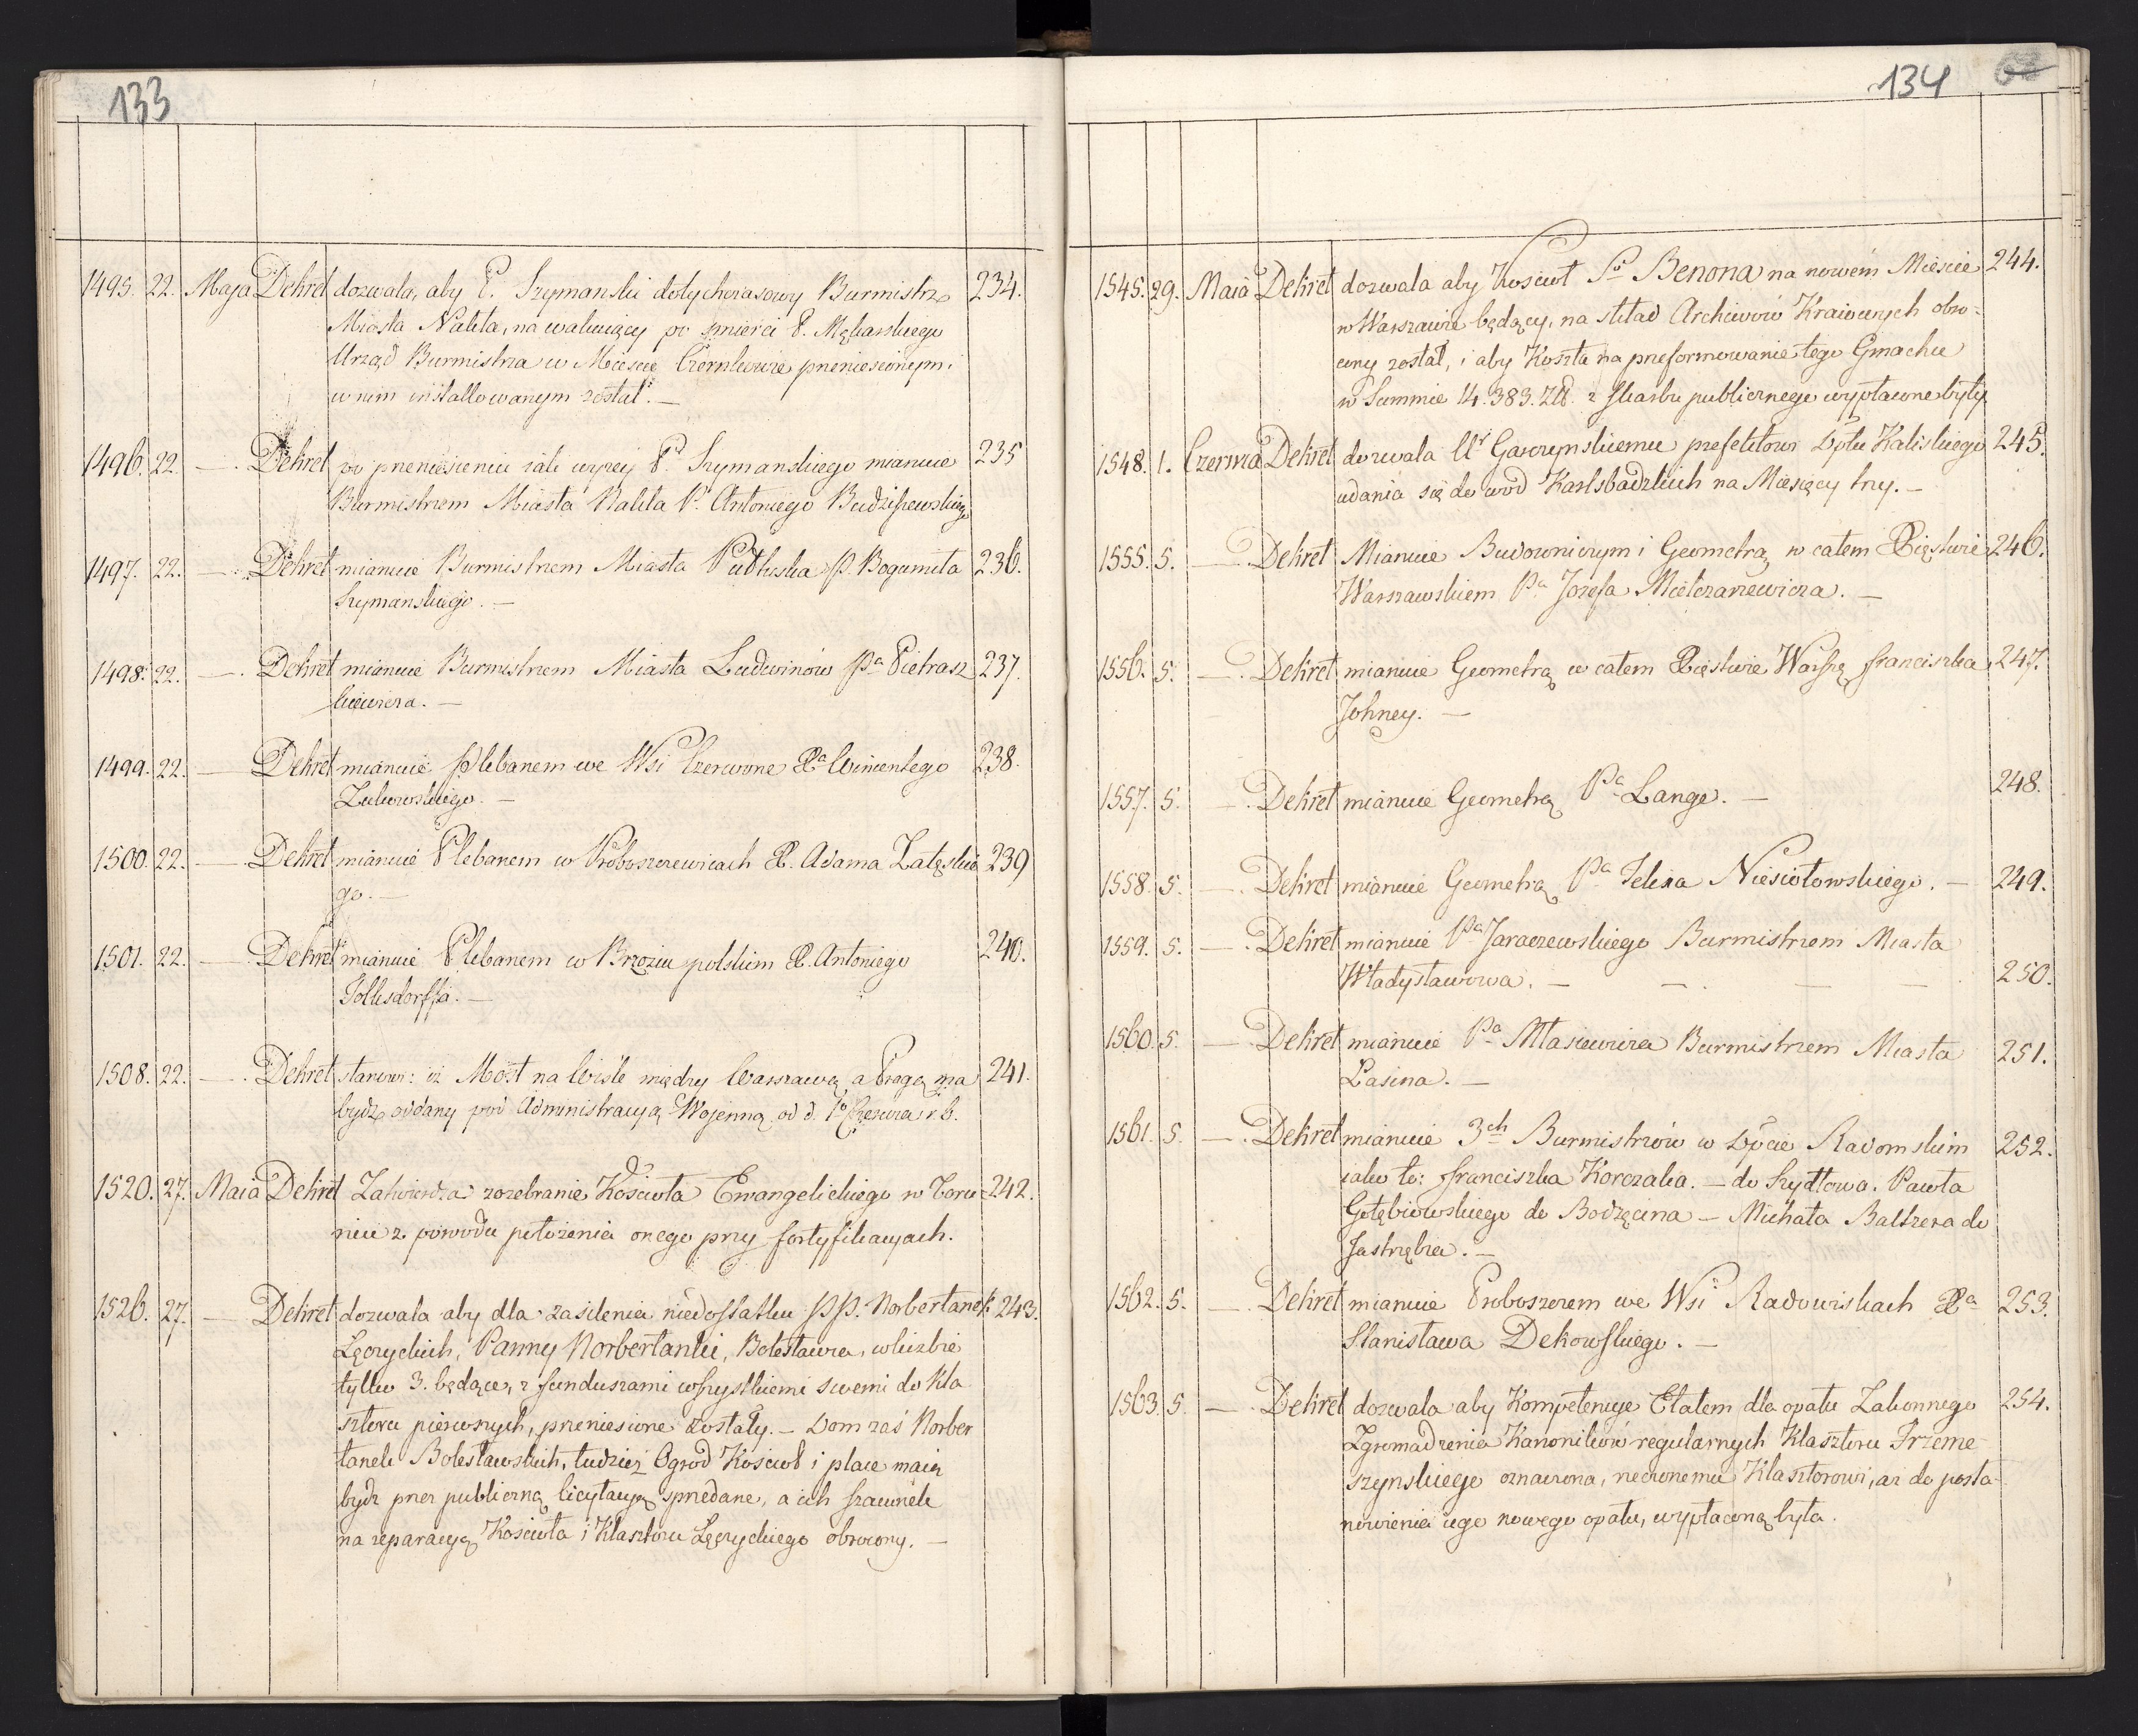 133
1495. 22. Maja Dekret dozwala, aby P. Szymanski dotychczasowy Burmistrz 234.
Miasta Nałęta, na wakuiący po śmierci P. Mękarskiego
Urząd Burmistrza w Miescie Czerniewie przeniesionym i
w nim installowanym został. —
1496. 22. — . Dekret po przeniesieniu iak wyżey Pa Szymanskiego mianuie 235
Burmistrzem Miasta Nałęta Pa Antoniego Budziszewskiego
1497. 22. — . Dekret mianuie Burmistrzem Miasta Pułtuska P. Bogumiła 236.
Szymanskiego. —
1498. 22. — . Dekret mianuie Burmistrzem Miasta Ludwinów Pa Pietrasz 237.
kiewicza. —
1499. 22. — Dekret mianuie Plebanem we Wsi Czerwone Xa Wincentego 238.
Żukowskiego. —
1500. 22. — . Dekret mianuie Plebanem w Proboszczewicach X. Adama Załęskie 239
go. —
1501. 22. — Dekret mianuie Plebanem w Brzoziu polskim X. Antoniego 240.
Tollksdorffa. —
1508. 22. — . Dekret stanowi: iż Most na Wiśle między Warszawą a Pragą ma 241.
bydź oddany pod Administracyą Woienną od d. 1o Czerwca r. b.
1520. 27. Maia Dekret Zatwierdza rozebranie Kościoła Ewangelickiego w Toru- 242.
niu z powodu położenia onego przy fortyfikacyach.
1526. 27. — Dekret dozwala aby dla zasilenia niedostatku PP. Norbertanek 243.
Łęczyckich, Panny Norbertanki, Bolesławca, w liczbie
tylko 3. będące, z funduszami wszystkiemi swemi do Kla
sztoru pierwszych, przeniesione zostały. — Dom zaś Norber
tanek Bolesławskich, tudzież Ogrod Kościoł i place maią
bydź przez publiczną licytacyą sprzedane, a ich szacunek
na reparacyą Kościoła i Klasztoru Łęczyckiego obrocony. —
134
1545. 29. Maia Dekret dozwala aby Kościoł So Benona na nowém Mieście 244.
w Warszawie będący, na skład Archiwów Kraiowych obro-
cony został, i aby Koszta na preformowanie tego Gmachu
w Summie 14.383. Zł. z skarbu publicznego wypłacone były
1548. 1. Czerwca Dekret dozwala Ur Garczynskiemu prefektowi Dptu Kaliskiego 245.
udania się do wod Karlsbadzkich na Miesięcy trzy. —
1555. 5. — . Dekret Mianuie Budowniczym i Geometrą w całem Xięstwie 246.
Warszawskiem Pa Jozefa Mielczarzewicza. —
1556. 5. — . Dekret mianuie Geometrą w całem Xięstwie Warszę franciszka 247.
Johney. —
1557. 5. — . Dekret mianuie Geometrą Pa Lange. — 248.
1558. 5. — . Dekret mianuie Geometrą Pa Felixa Niesiołowskiego. — 249.
1559. 5. — . Dekret mianuie Pa Jaraczewskiego Burmistrzem Miasta
Władysławowa. — — . — — 250.
1560. 5. — . Dekret mianuie Pa Mlasiewicza Burmistrzem Miasta 251.
Łasina. —
1561. 5. — . Dekret mianuie 3ch Burmistrzów w Dpcie Radomskim 252.
iako to: franciszka Korczaka. — do Szydłowa. Pawła
Gołębiowskiego do Bodzęcina — Michała Baltzera do
Jastrzębia. —
1562. 5. — . Dekret mianuie Proboszczem we Wsi Radowiskach Xa 253.
Stanisława Dekowskiego. —
1563. 5. — . Dekret dozwala aby Kompetencye Etatem dla opata Zakonnego 254.
Zgromadzenia Kanoników regularnych Klasztoru Trzeme-
szynskiego oznaczona, rzeczonemu Klasztorowi, aż do posta-
nowienia iego nowego opata, wypłaconą była.